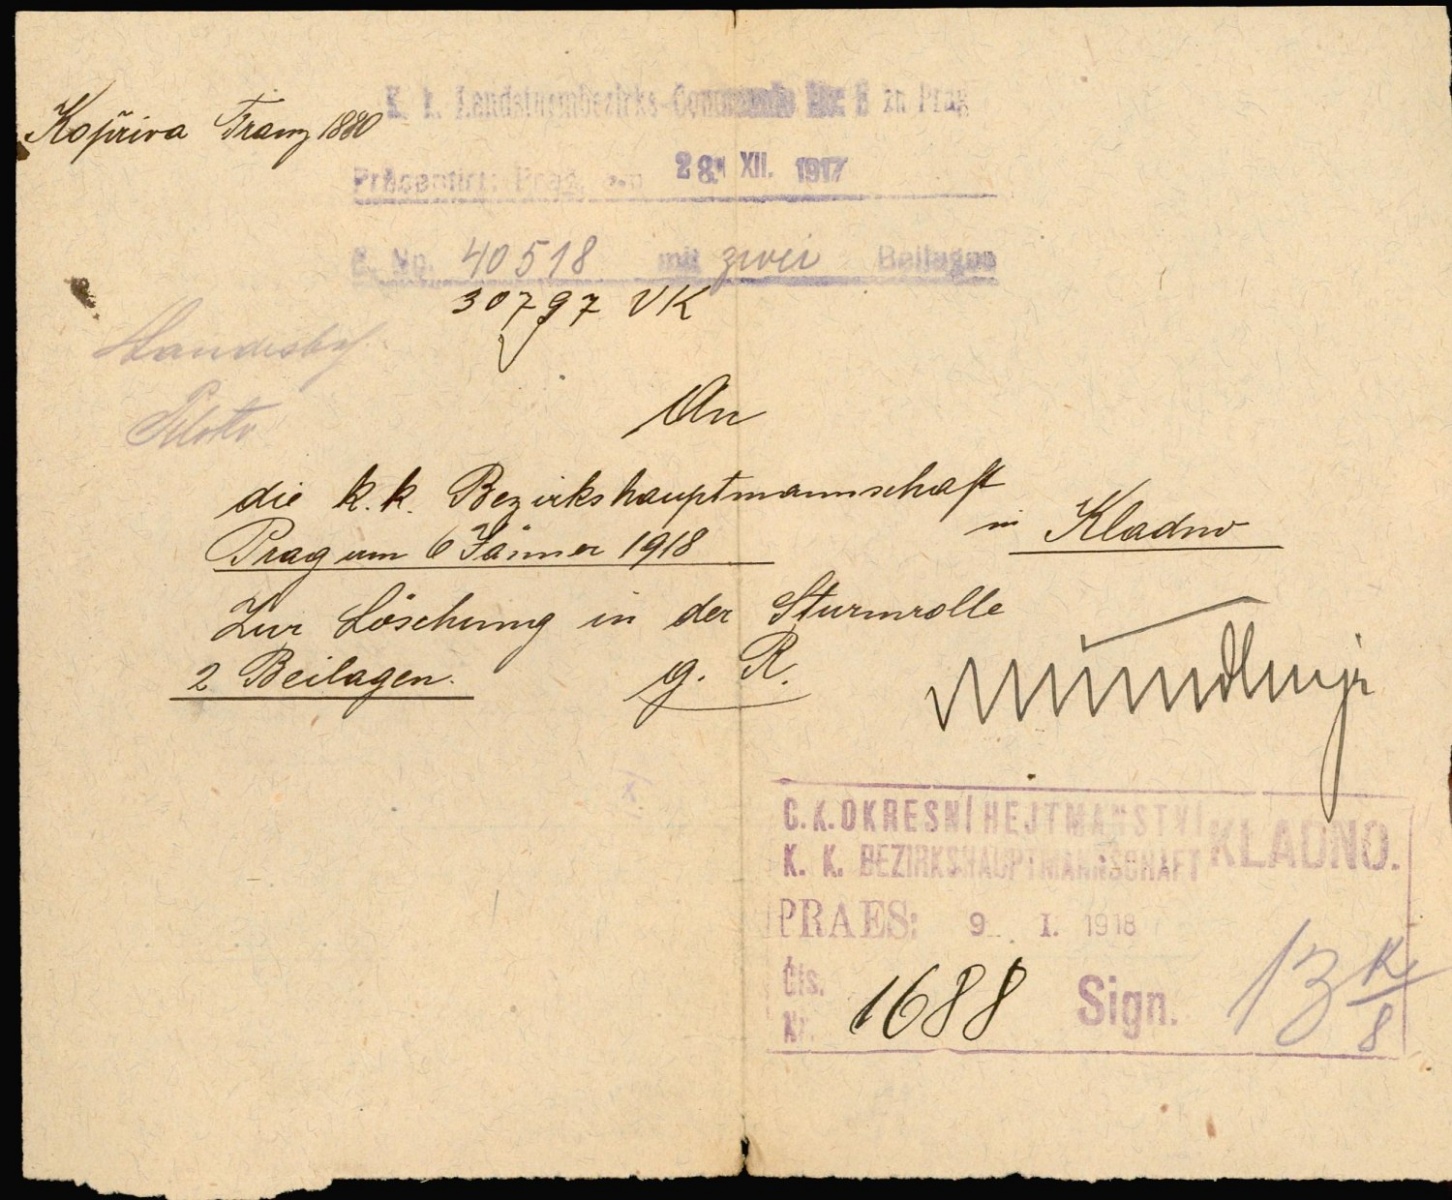 Kopřiva Franz 1880
K. k. Landsturmbezirks-Commando Nr. 8 in Prag
Präsentirt: Prag, am 28. XII. 1917
E. No. 40518 mit zwei Beilagen
30797 VK
An
die k.k. Bezirkshauptmannschaft
in Kladno
Prag am 6 Jänner 1918
Zur Löschung in der Sturmrolle
2 Beilagen. g. R.
C. K. OKRESNÍ HEJTMANSTVÍ
K. K. BEZIRKSHAUPTMANNSCHAFT KLADNO.
PRAES: 9. I. 1918
Čís.
Nr. 1688 Sign. 13 K/8